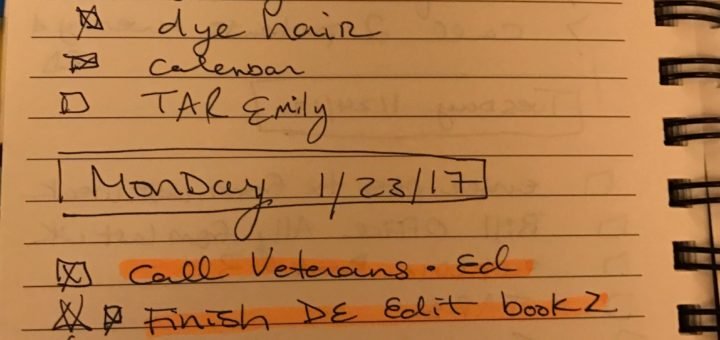 dye hair
calendar
TAR Emily
Monday 1/23/17
Call Veterans • Ed
Finish DE Edit book 2